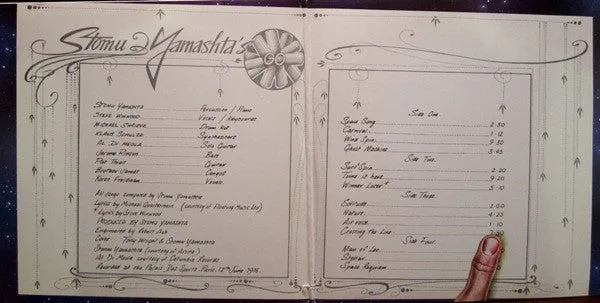 Stomu Yamashta's
GO
Stomu Yamashta Percussion / Piano
Steve Winwood Vocals / Keyboards
Michael Shrieve Drum Kit
Klaus Schulze Synthesizers
Al Di Meola Solo Guitar
Jerome Rimson Bass
Pat Thrall Guitar
Brother James Congas
Karen Friedman Vocals
All songs composed by Stomu Yamashta
Lyrics by Michael Quartermain (courtesy of Floating Music Ltd)
+ Lyrics by Steve Winwood
Produced by Stomu Yamashta
Engineered by Robert Ash
Cover Tony Wright & Stomu Yamashta
Stomu Yamashta (courtesy of Arista)
Al Di Meola courtesy of Columbia Records
Recorded at the Palais Des Sports Paris 12th June 1976
Side One
Space Song 2:30
Carnival 1:12
Wind Spin 9:30
Ghost Machine 3:45
Side Two
Surf Spin 2:20
Time is here 9:20
Winner Loser + 5:10
Side Three
Solitude 2:00
Nature 4:25
Air voice 1:10
Crossing the Line 7:50
Side Four
Man of Leo
Stellar
Space Requiem